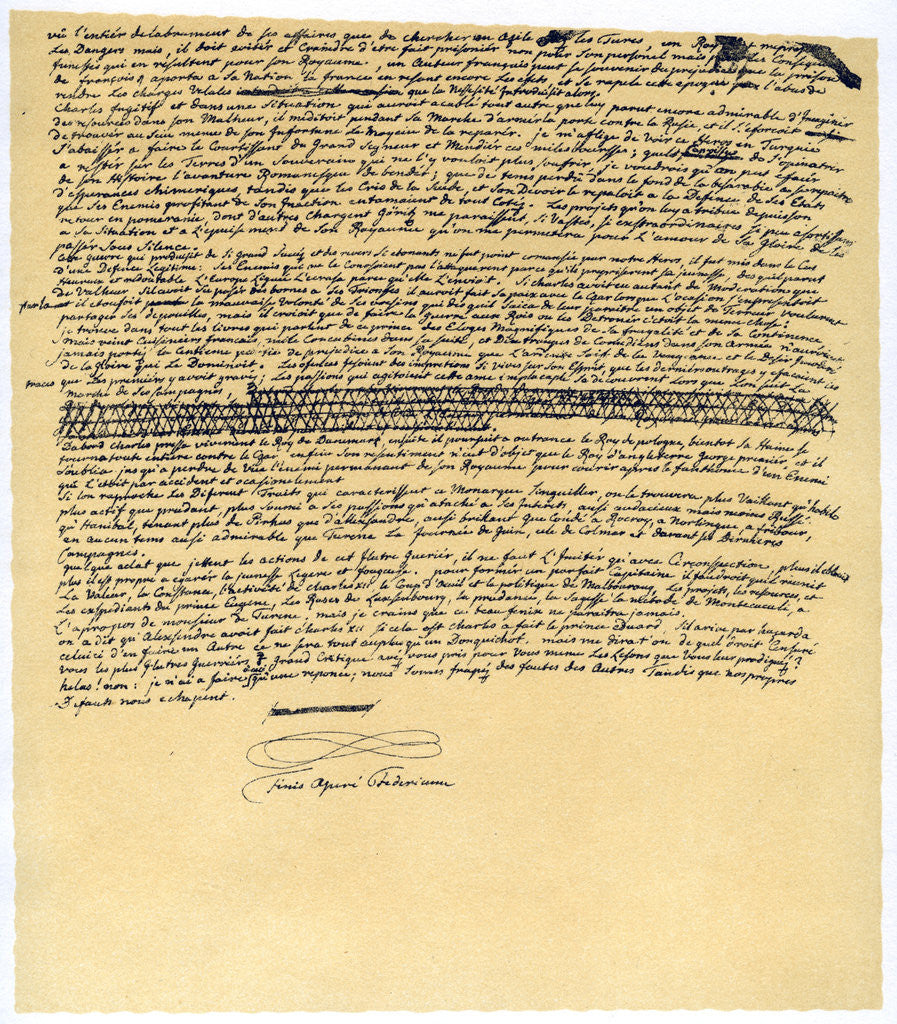 vû l'entiér delabrement de ses affaires que de chercher un Azile les Turcs, un Roy
Les Dangers mais, il doit eviter et Craindre d'etre fait prisonier non pour Son personel mais les Conseque
funestes qui en resultent pour son Royaume, un Auteur françois peut se souvenir du prejudice que la prison
de françois 1 aporta a Sa Nation, la france en resent encore Les efets, et se rapele cete epoque par l'abus de
rendre Les charges Venales que la Nessesité Introduisit alors.
Charles fugitif et dans une Situation qui auroit acablé tout autre que luy parut encore admirable d'Imaginér
des resources dans son Malheur, il meditoit pendant Sa Marche d'armér la porte contre la Rusie, et il s'eforcoit
de trouvér au Sein meme de Son Infortune Le Moyein de la reparér. je m'aflige de Voir ce Heros en Turquie
S'abaissér a faire le Courtissant du Grand Seyneur et Mendiér ces miles bourses; quels Caprisses de S'opinatrer
a restér sur les Terres d'un Souverain qui ne l'y vouloit plus soufrir; je voudrois qu'on put efacér
de son Histoire l'avanture Romanesque de bendér; que de tems perdû dans le fond de la besarabie a se repaitre
d'esperances chimeriques, tandis que les Cris de la Suede, et Son Devoir le rapeloit a la Defence de Ses Etats
que Ses Enemis profitant de Son Inaction entamoient de tout Cotéz. Les projets qu'on luy atribue depuis son
retour en pomeranie, dont d'autres Chargent Görtz me paraissent, Si Vastes, si exstraordinaires si peu asortissants
a Sa Situation et a l'epuisement de Son Royaume qu'on me permetera pour L'amour de Sa Gloire de les
passér Sous Silence.
Cete Guerre qui produisit de Si Grand Sucés et des revers Si etonants ne fut point comensée par notre Heros, il fut mis dans le Cas
d'une Defence Legitime: Ses Enemis qui ne le Conoissoient pas l'ataquerent parce qu'ils meprisserent sa jeunesse, des quil parut
Heureux et redoutable L'Europe l'enviat parce qu'ele L'envioit. Si charles avoit eu autant de Moderations que
de Valleur S'il avoit Su poser des bornes a Ses Triomfes il auroit fait Sa paix avec le Czar lorsque L'ocasion s'en presentoit
par la il etoufoit la mauvaise Volonté de Ses voissins qui des quil Cessa de leur paraitre un objet de Terreur voulurent
partager Ses depouilles, mais il croioit que de faire la Guerre aux Rois ou les Detroner c'etoit la meme chose.
je trouve dans tout les livres qui parlent de ce prince des Eloges Magnifiques de Sa frugalité et de Sa Continence,
Mais vint Cuisiniers francais, mile Concubines dans sa suite, et Dix troupes de Comediens dans son Armée n'auroient
jamais porté la Centieme partie de prejudice a Son Royaume que L'ardente Soif de la Vengeance et le Desir Imodere
de la Gloire qui Le Dominoit. Les ofences fesoient des impretions Si vives sur Son Esprit, que les derniers outrages y efacoient ces
traces que Les premieres y avoit gravé; Les passions qui agitoient cete ame implacaple se decouvrent Lors que L'on suit La
marche de Ses Campagnes
Dabord charles presse vivement le Roy de Danemarc, ensuite il poursuit a outrance le Roy de pologne, bientot Sa Haine se
tourna toute entiere contre le Czar enfin Son resentiment n'eut d'objet que le Roy d'angleterre george premier, et il
S'oublia jus qu'a perdre de Vue l'enemi permanant de son Royaume pour courir apres le fanthome d'un Enemi
qui L'etoit par accident et ocasionelement
Si lon raproche Les Diferent Traits qui caracterissent ce Monarque Singuliér, on le trouvera plus Vaillant qu'habile
plus actif que prudant, plus Soumis a Ses passions qu'ataché a Ses Interéts, ausi audacieux mais moins Russé
qu'Hanibal, tenant plus de Pirhus que d'alexsandre, ausi brillant que Condé a Rocroy, a Norlingue, a fribourg,
en aucun tems ausi admirable que Turene La Journée de Guin, cele de Colmar et davant ses Dernieres
Campagnes.
quelque eclat que jettent les actions de cet Ilutre Gueriér, il ne faut L'Imitér qu'avec Circonspection, plus il eblouit
plus il est propre a egarér la jeunesse Legere et fougeuse. pour formér un parfait Capitaine il faudroit quil reunit
La Valeur, la Constance, l'activité de charles XII le Coup d'oeuil et la politique de Malbouroug, Les projets, les resources, et
Les exspediants du prince Eugene, Les Ruses de Luxenbourg, la prudance, la Sagesse la metode de Montecuculi, a
L'apropos de monsieur de Turene; mais je crains que ce beau fenix ne paraitra jamais.
on a dit qu'Alexsandre avoit fait charles XII si cela est Charles a fait le prince Eduard. S'il arive par hazard a
celuici d'en faire un Autre ce ne sera tout auplus qu'un Donquichot. mais me dira-t'on de quel droit Censuré
vous les plus Ilutres Guerriérs? Grand Critique avéz vous pris pour Vous meme Les Lesons que Vous leur prodiguéz?
helas! non: je n'ai a faire qu'une reponce; nous Somes frapéz des fautes des Autres Tandis que nos propres
Defauts nous echapent.
Finis Operé Federicum